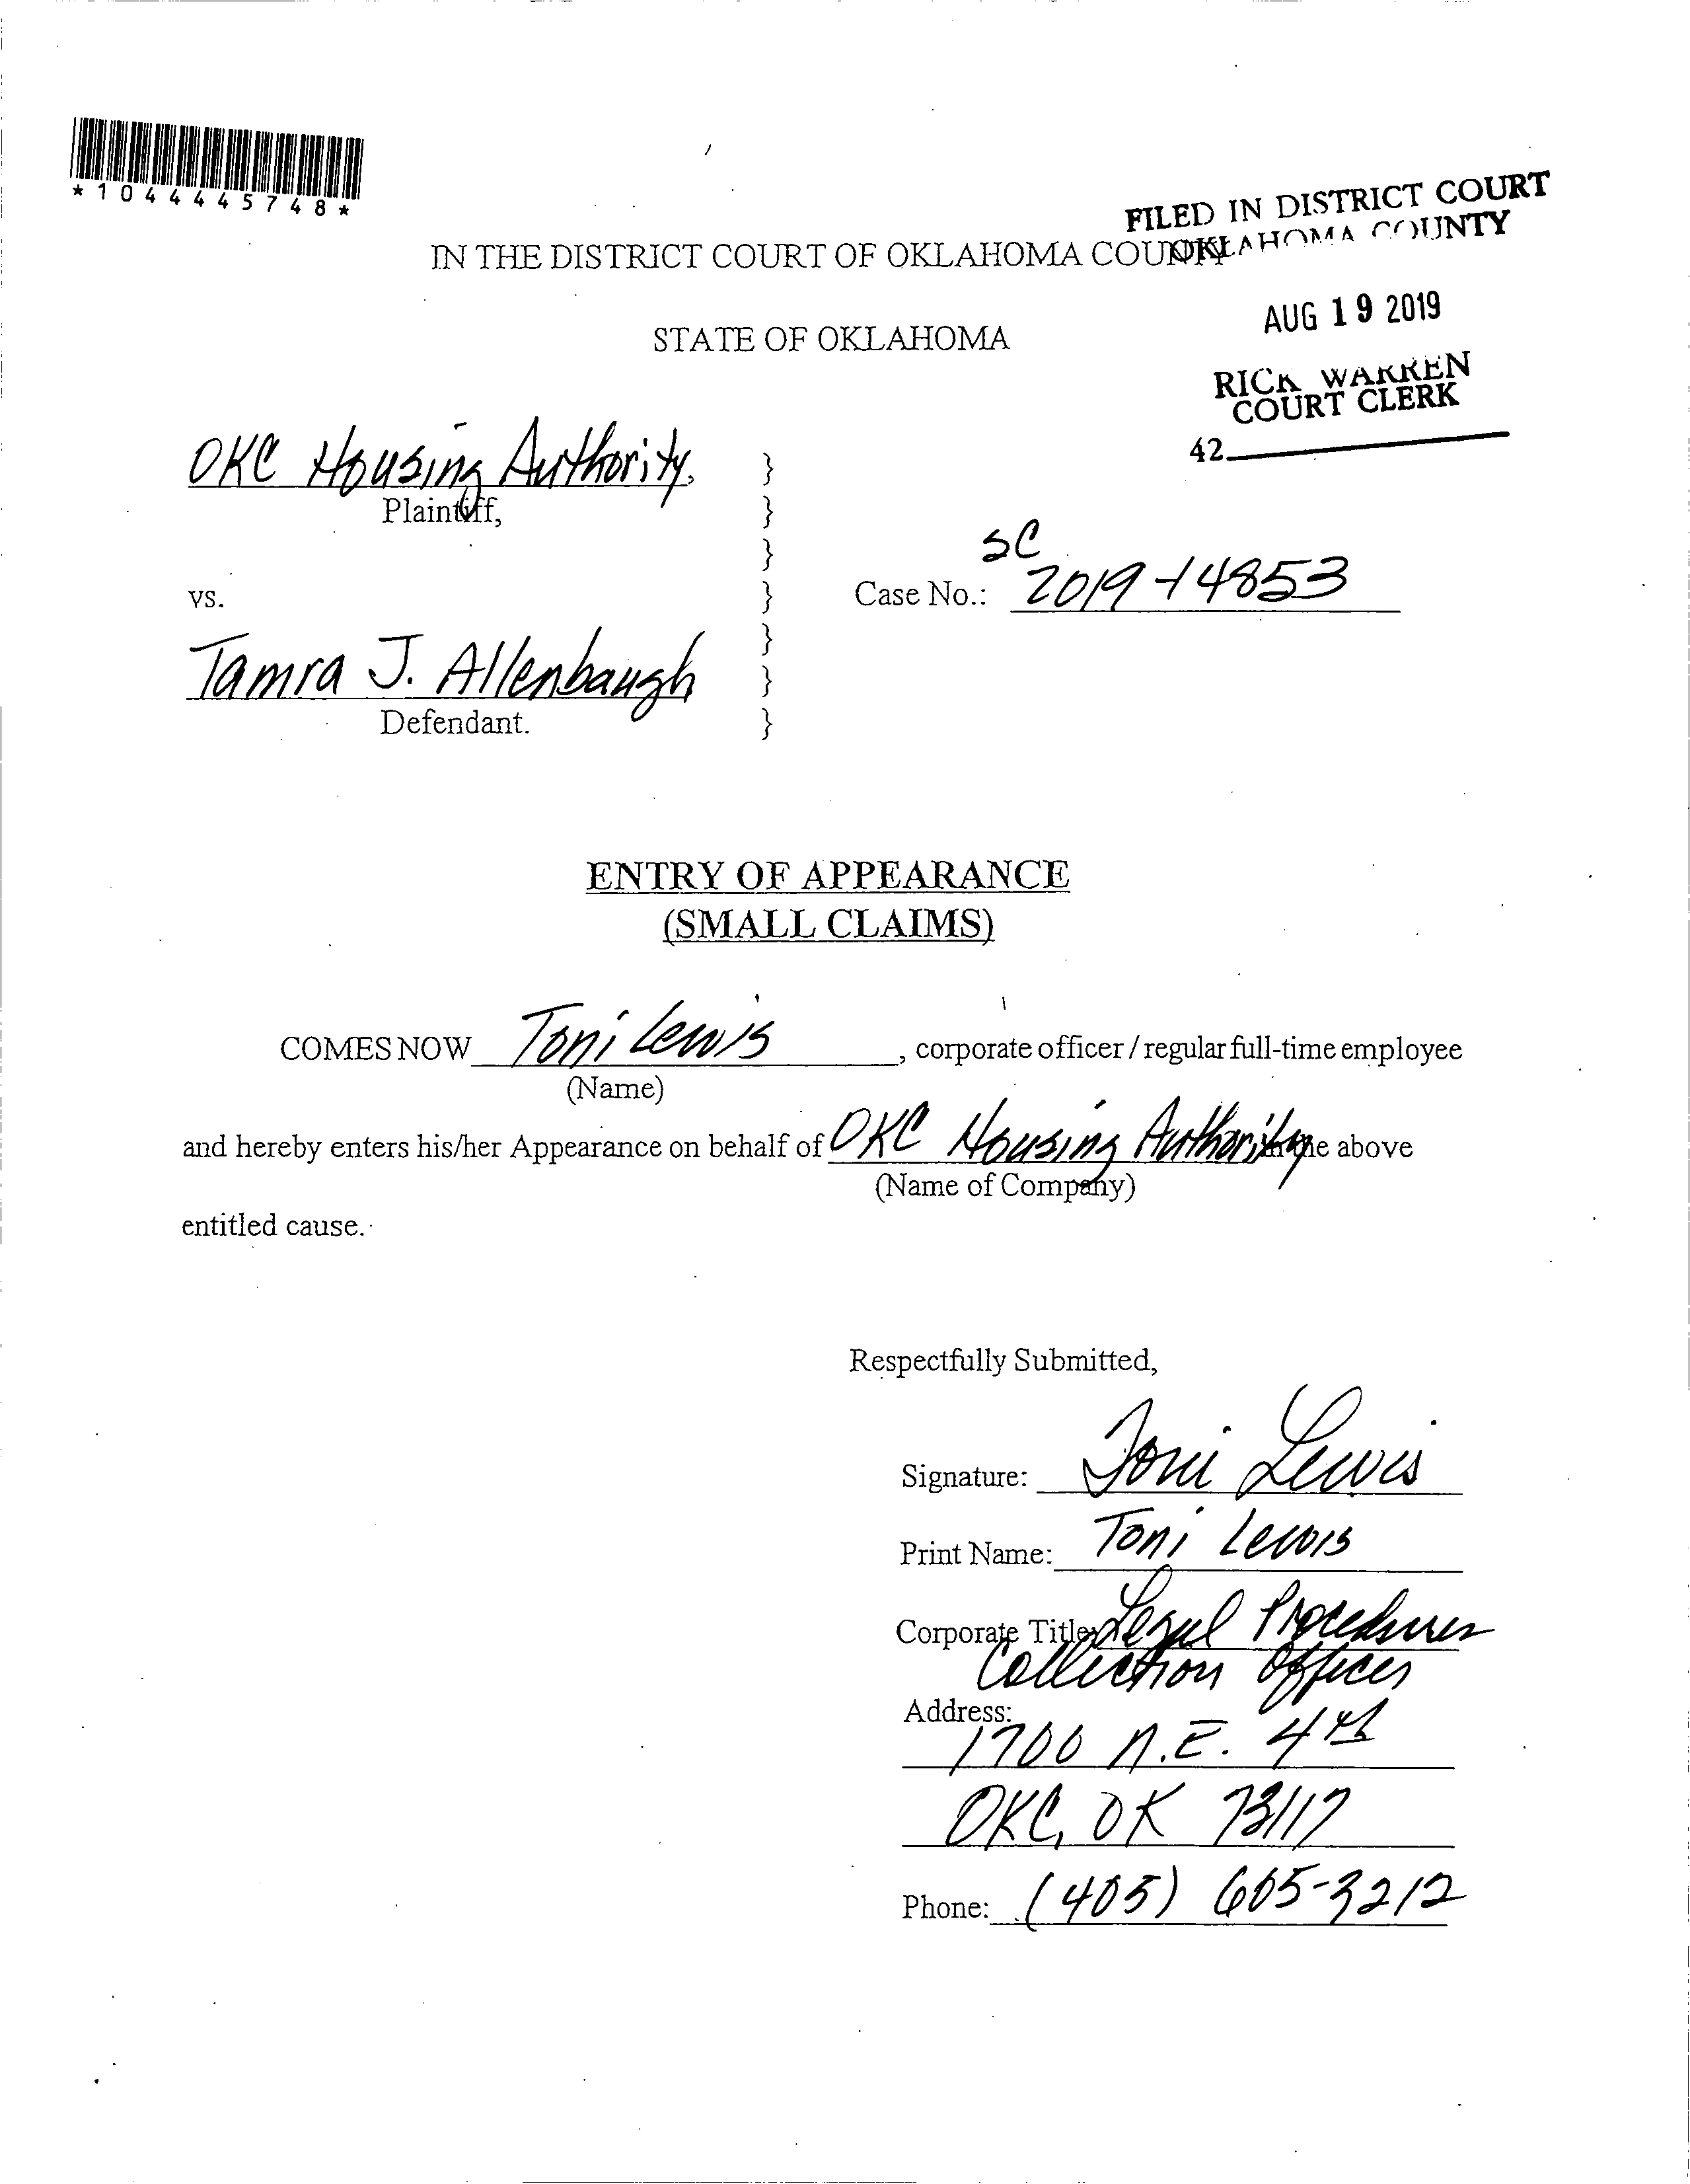 *1044445748*
FILED IN DISTRICT COURT
OKLAHOMA COUNTY
IN THE DISTRICT COURT OF OKLAHOMA COUNTY
AUG 19 2019
STATE OF OKLAHOMA
RICK WARREN
COURT CLERK
42
OKC Housing Authority,
Plaintiff,
SC
vs.
Case No.: 2019-14853
Tamra J. Allenbaugh
Defendant.
ENTRY OF APPEARANCE
(SMALL CLAIMS)
COMES NOW Toni Lewis, corporate officer / regular full-time employee
(Name)
and hereby enters his/her Appearance on behalf of OKC Housing Authority in the above
(Name of Company)
entitled cause.
Respectfully Submitted,
Signature: Toni Lewis
Print Name: Toni Lewis
Corporate Title: Legal Procedures
Collection Officer
Address:
1700 N.E. 4th
OKC, OK 73117
Phone: (405) 605-3212